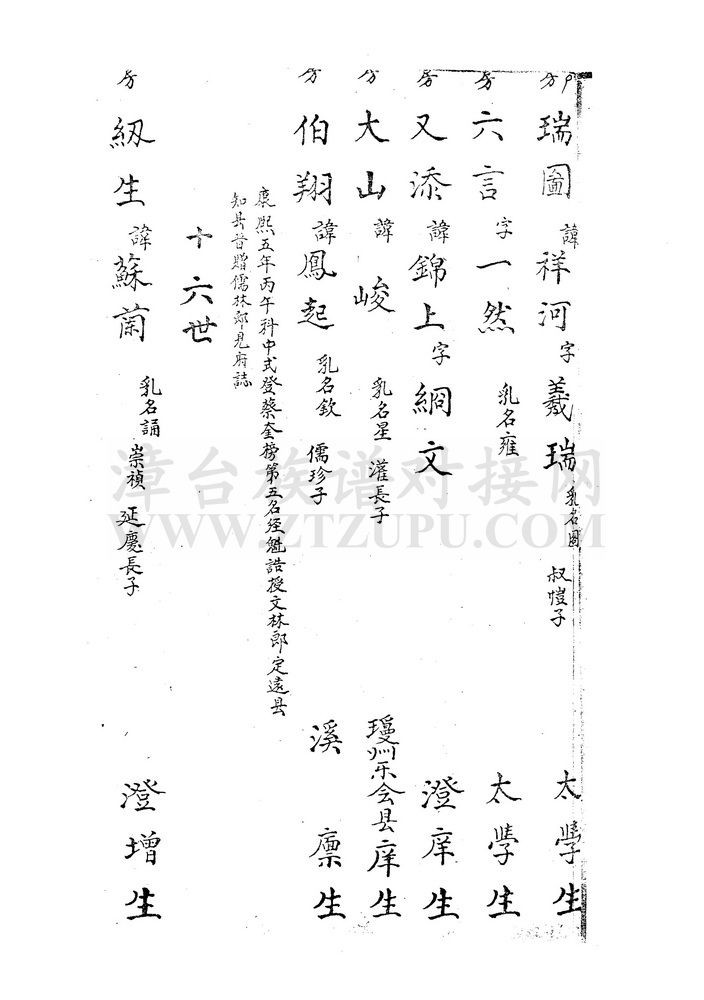 房 瑞圖 諱 祥河 字 羲瑞 乳名圖 叔愷子 太學生
房 六言 字 一然 乳名雍 太學生
房 又添 諱 錦上 字 絅文 澄庠生
房 大山 諱 峻 乳名星 灌長子 瓊州乐会县庠生
房 伯翔 諱 鳳起 乳名欽 儒珍子 溪廪生
康熙五年丙午科中式登蔡奎榜第五名經魁誥授文林郎定遠县
知县晉贈儒林郎見府誌
十六世
房 紉生 諱 蘇蘭 乳名誦 崇禎 延慶長子 澄增生
漳台族谱对接网
WWW.ZTZUPU.COM